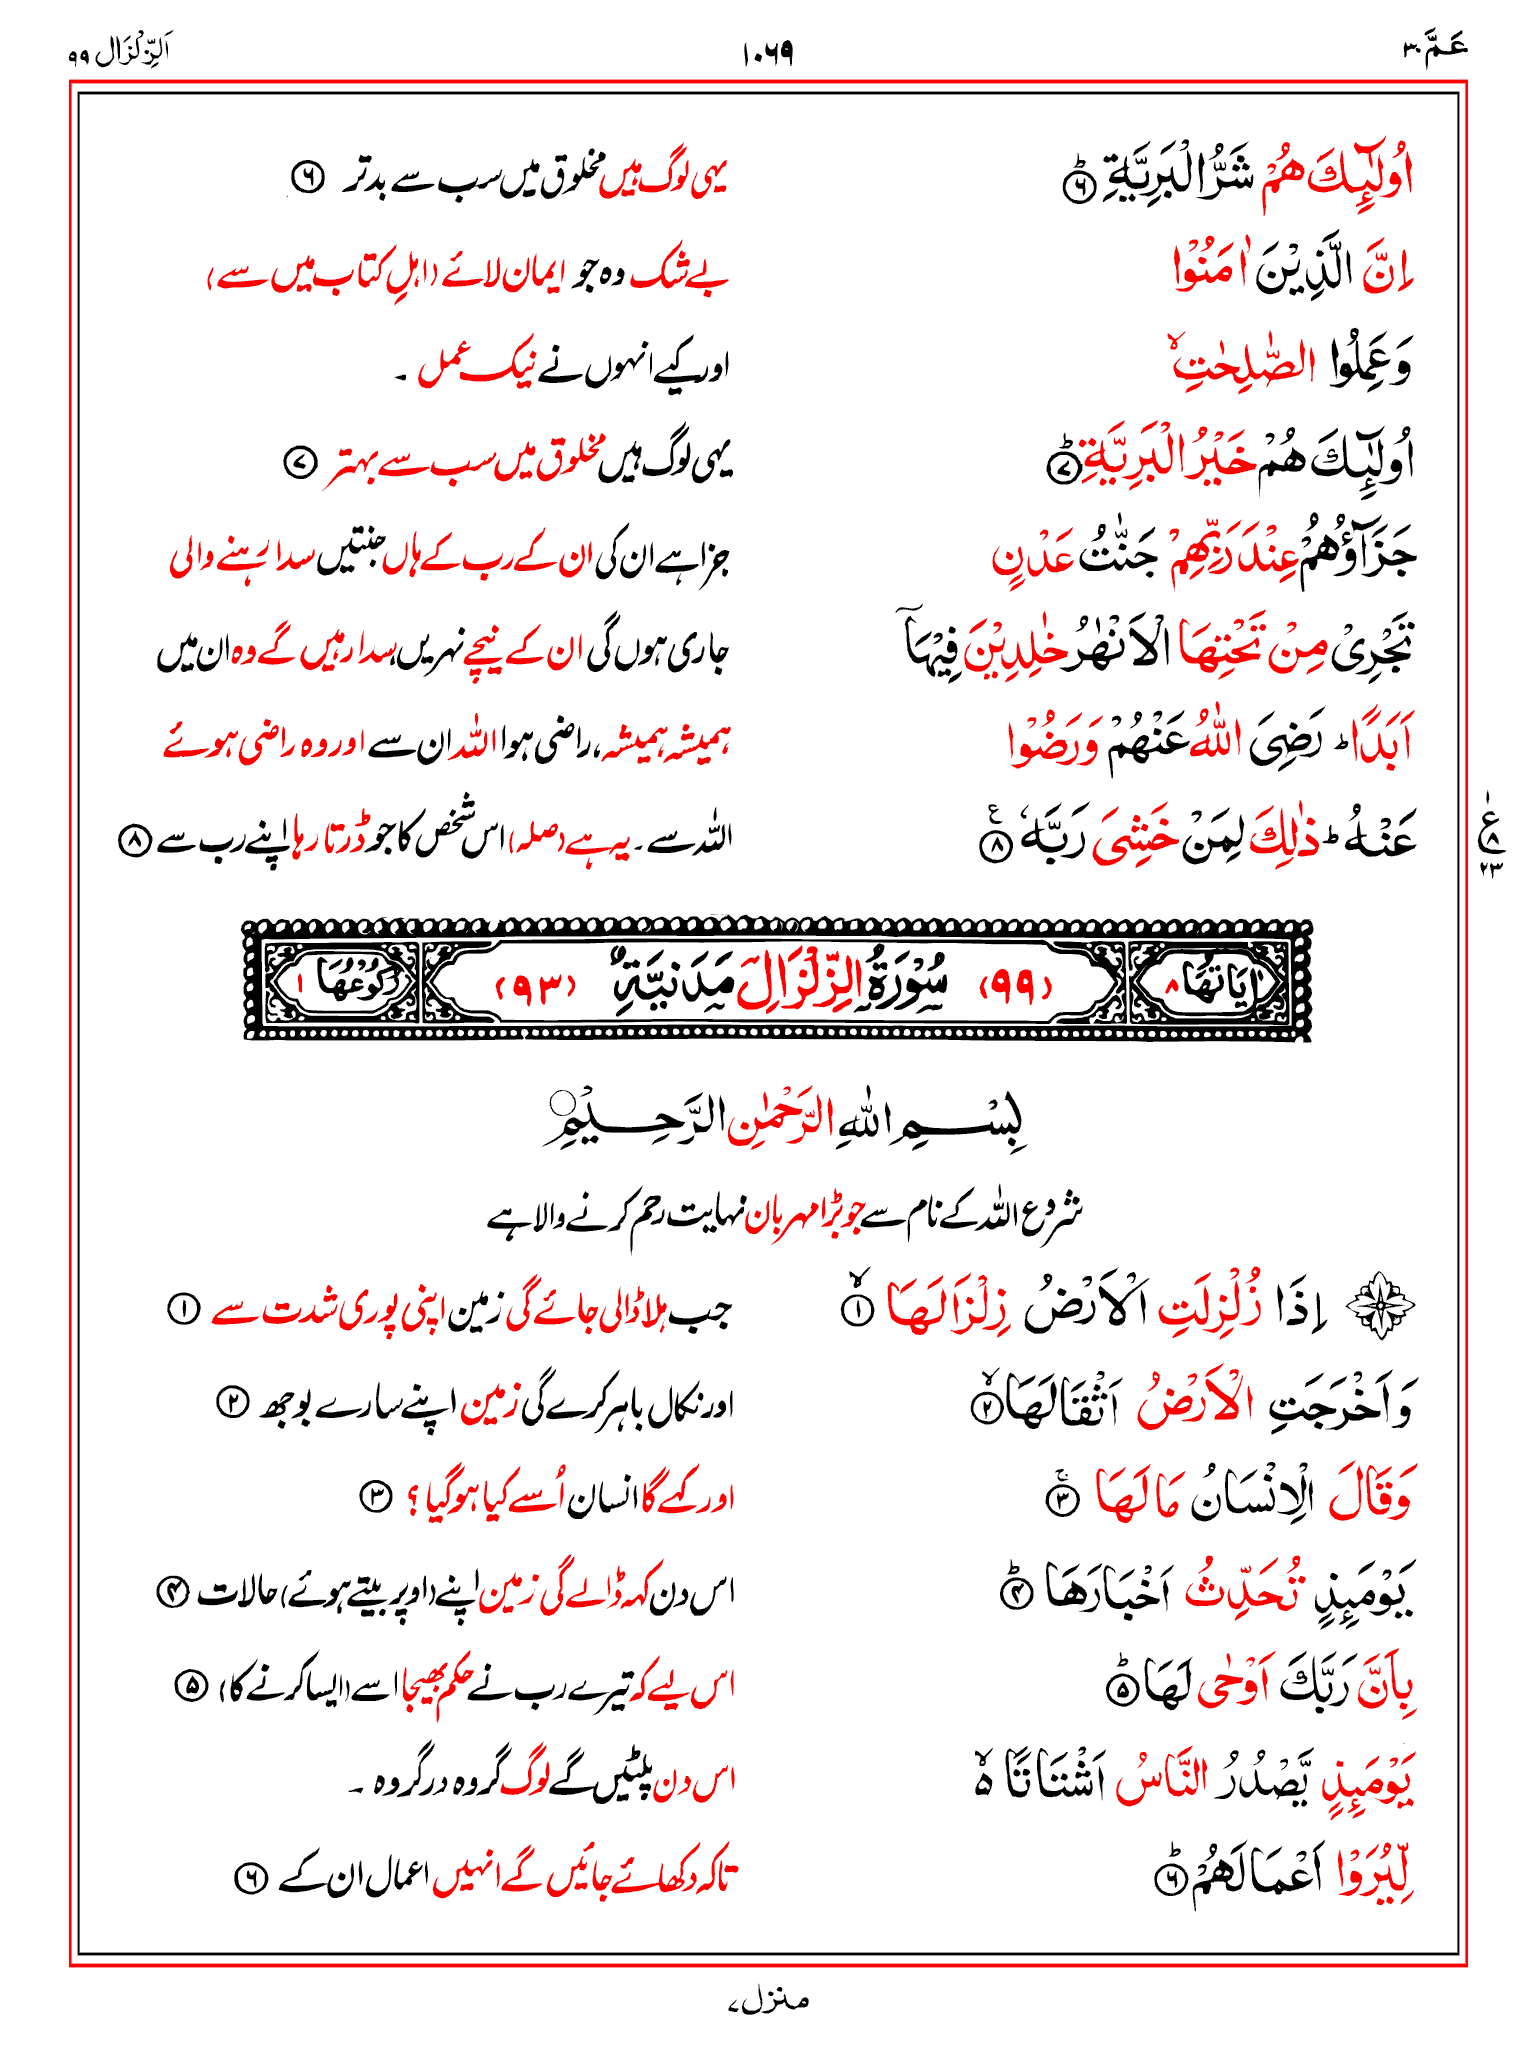 عَمَّ ٣٠
١٠٦٩
اَلزِّلْزَال ٩٩
اُولٰٓئِكَ هُمْ شَرُّ الْبَرِیَّةِ ؕ ۶
یہی لوگ ہیں مخلوق میں سب سے بدتر ۶
اِنَّ الَّذِیْنَ اٰمَنُوْا
بے شک وہ جو ایمان لائے (اہلِ کتاب میں سے)
وَعَمِلُوا الصّٰلِحٰتِ ۙ
اور کیے انہوں نے نیک عمل ۔
اُولٰٓئِكَ هُمْ خَیْرُ الْبَرِیَّةِ ؕ ۷
یہی لوگ ہیں مخلوق میں سب سے بہتر ۷
جَزَآؤُهُمْ عِنْدَ رَبِّهِمْ جَنّٰتُ عَدْنٍ
جزا ہے ان کی ان کے رب کے ہاں جنتیں سدا رہنے والی
تَجْرِیْ مِنْ تَحْتِهَا الْاَنْهٰرُ خٰلِدِیْنَ فِیْهَاۤ
جاری ہوں گی ان کے نیچے نہریں، سدا رہیں گے وہ ان میں
اَبَدًا ؕ رَضِیَ اللّٰهُ عَنْهُمْ وَرَضُوْا
ہمیشہ ہمیشہ، راضی ہوا اللہ ان سے اور وہ راضی ہوئے
عَنْهُ ؕ ذٰلِكَ لِمَنْ خَشِیَ رَبَّهٗ ۸ ع
اللہ سے ۔ یہ ہے (صلہ) اس شخص کا جو ڈرتا رہا اپنے رب سے ۸
ع ۱ ۸ ۲۳
اٰیَاتُهَا ۸
(۹۹) سُوْرَةُ الزِّلْزَالِ مَدَنِیَّةٌ (۹۳)
رُكُوْعُهَا ۱
بِسْمِ اللّٰهِ الرَّحْمٰنِ الرَّحِیْمِ
شروع اللہ کے نام سے جو بڑا مہربان نہایت رحم کرنے والا ہے
اِذَا زُلْزِلَتِ الْاَرْضُ زِلْزَالَهَا ۙ ۱
جب ہلا ڈالی جائے گی زمین اپنی پوری شدت سے ۱
وَاَخْرَجَتِ الْاَرْضُ اَثْقَالَهَا ۙ ۲
اور نکال باہر کرے گی زمین اپنے سارے بوجھ ۲
وَقَالَ الْاِنْسَانُ مَا لَهَا ۚ ۳
اور کہے گا انسان اُسے کیا ہو گیا؟ ۳
یَوْمَئِذٍ تُحَدِّثُ اَخْبَارَهَا ؕ ۴
اس دن کہہ ڈالے گی زمین اپنے (اوپر بیتے ہوئے) حالات ۴
بِاَنَّ رَبَّكَ اَوْحٰی لَهَا ؕ ۵
اس لیے کہ تیرے رب نے حکم بھیجا اسے (ایسا کرنے کا) ۵
یَوْمَئِذٍ یَّصْدُرُ النَّاسُ اَشْتَاتًا ۙ۬
اس دن پلٹیں گے لوگ گروہ در گروہ ۔
لِّیُرَوْا اَعْمَالَهُمْ ؕ ۶
تاکہ دکھائے جائیں گے انہیں اعمال ان کے ۶
منزل ۷